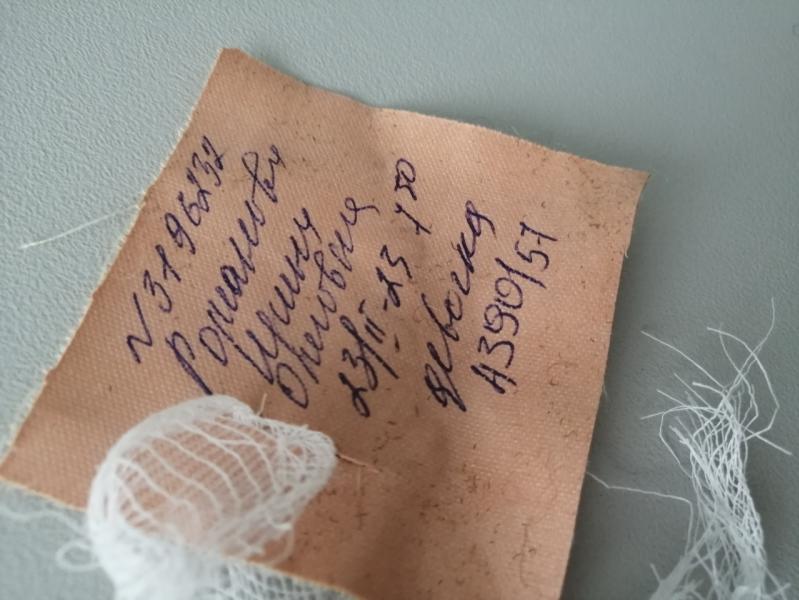 N 3196232
Романович
Ирины
Олеговна
23/II-23 1 50
девочка
4390/51